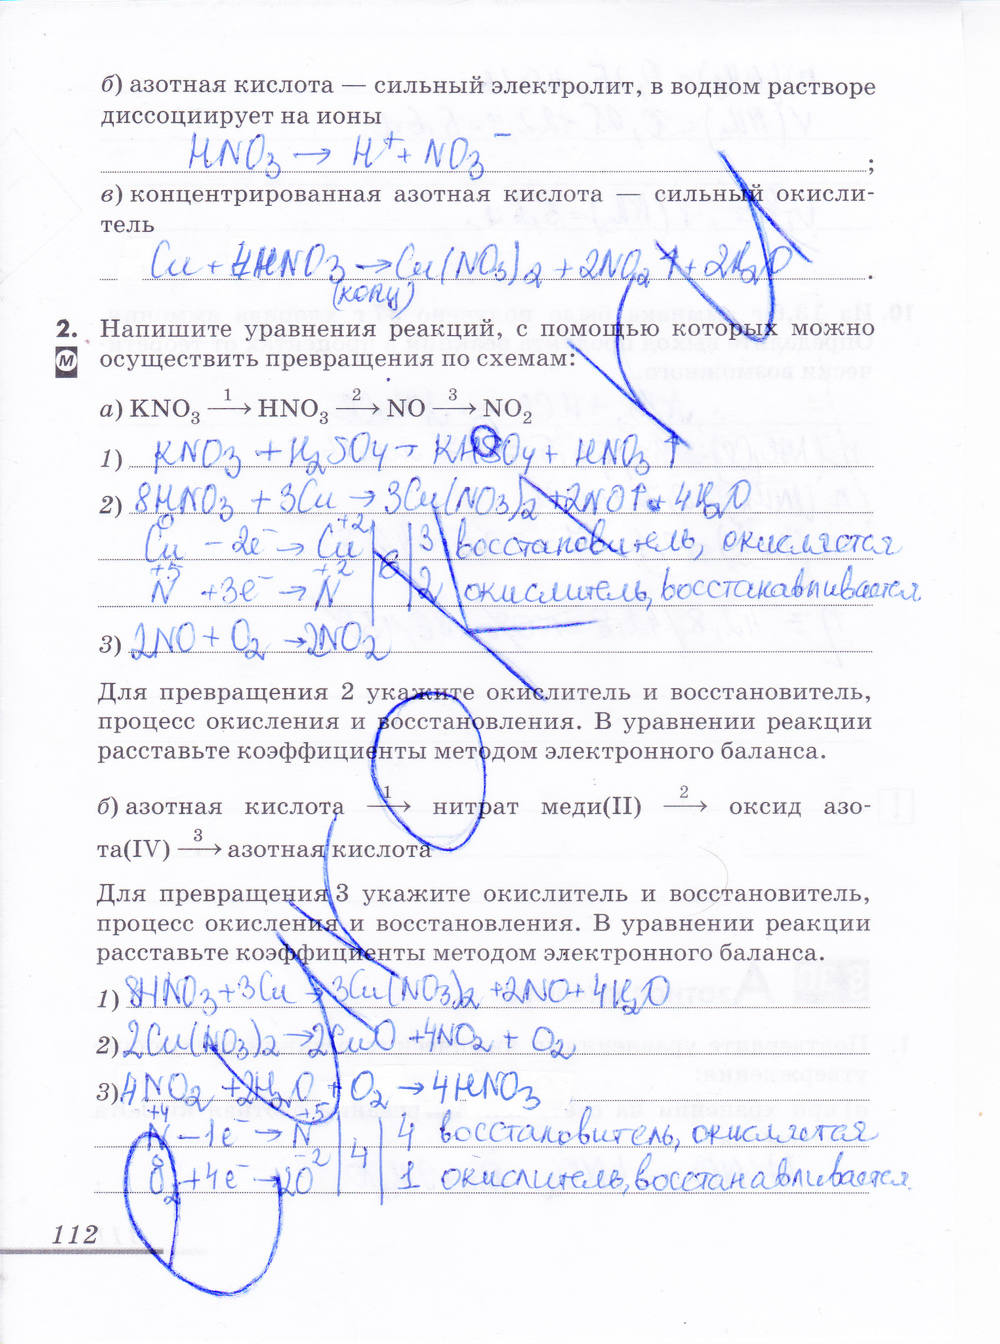 б) азотная кислота — сильный электролит, в водном растворе
диссоциирует на ионы
HNO₃ → H⁺ + NO₃⁻ ;
в) концентрированная азотная кислота — сильный окисли-
тель
Cu + 4HNO₃ → Cu(NO₃)₂ + 2NO₂↑ + 2H₂O .
(конц)
2. Напишите уравнения реакций, с помощью которых можно
М осуществить превращения по схемам:
а) KNO₃ —1→ HNO₃ —2→ NO —3→ NO₂
1) KNO₃ + H₂SO₄ → KHSO₄ + HNO₃↑
2) 8HNO₃ + 3Cu → 3Cu(NO₃)₂ + 2NO↑ + 4H₂O
Cu⁰ − 2e⁻ → Cu⁺² | 6 | 3 восстановитель, окисляется
N⁺⁵ + 3e⁻ → N⁺² | | 2 окислитель, восстанавливается
3) 2NO + O₂ → 2NO₂
Для превращения 2 укажите окислитель и восстановитель,
процесс окисления и восстановления. В уравнении реакции
расставьте коэффициенты методом электронного баланса.
б) азотная кислота —1→ нитрат меди(II) —2→ оксид азо-
та(IV) —3→ азотная кислота
Для превращения 3 укажите окислитель и восстановитель,
процесс окисления и восстановления. В уравнении реакции
расставьте коэффициенты методом электронного баланса.
1) 8HNO₃ + 3Cu → 3Cu(NO₃)₂ + 2NO + 4H₂O
2) 2Cu(NO₃)₂ → 2CuO + 4NO₂ + O₂
3) 4NO₂ + 2H₂O + O₂ → 4HNO₃
N⁺⁴ − 1e⁻ → N⁺⁵ | 4 | 4 восстановитель, окисляется
O₂⁰ + 4e⁻ → 2O⁻² | | 1 окислитель, восстанавливается
112